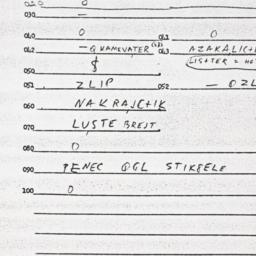 020 0
030 —
040 0 041 0
042 — QKAMEVATER 043 AZAKALICH
050 $
051 ZLIP 052 — OZL
060 NAKRAJCHIK
070 LUSTE BREJT
080 0
090 PENEC OGL STIKSELE
100 0